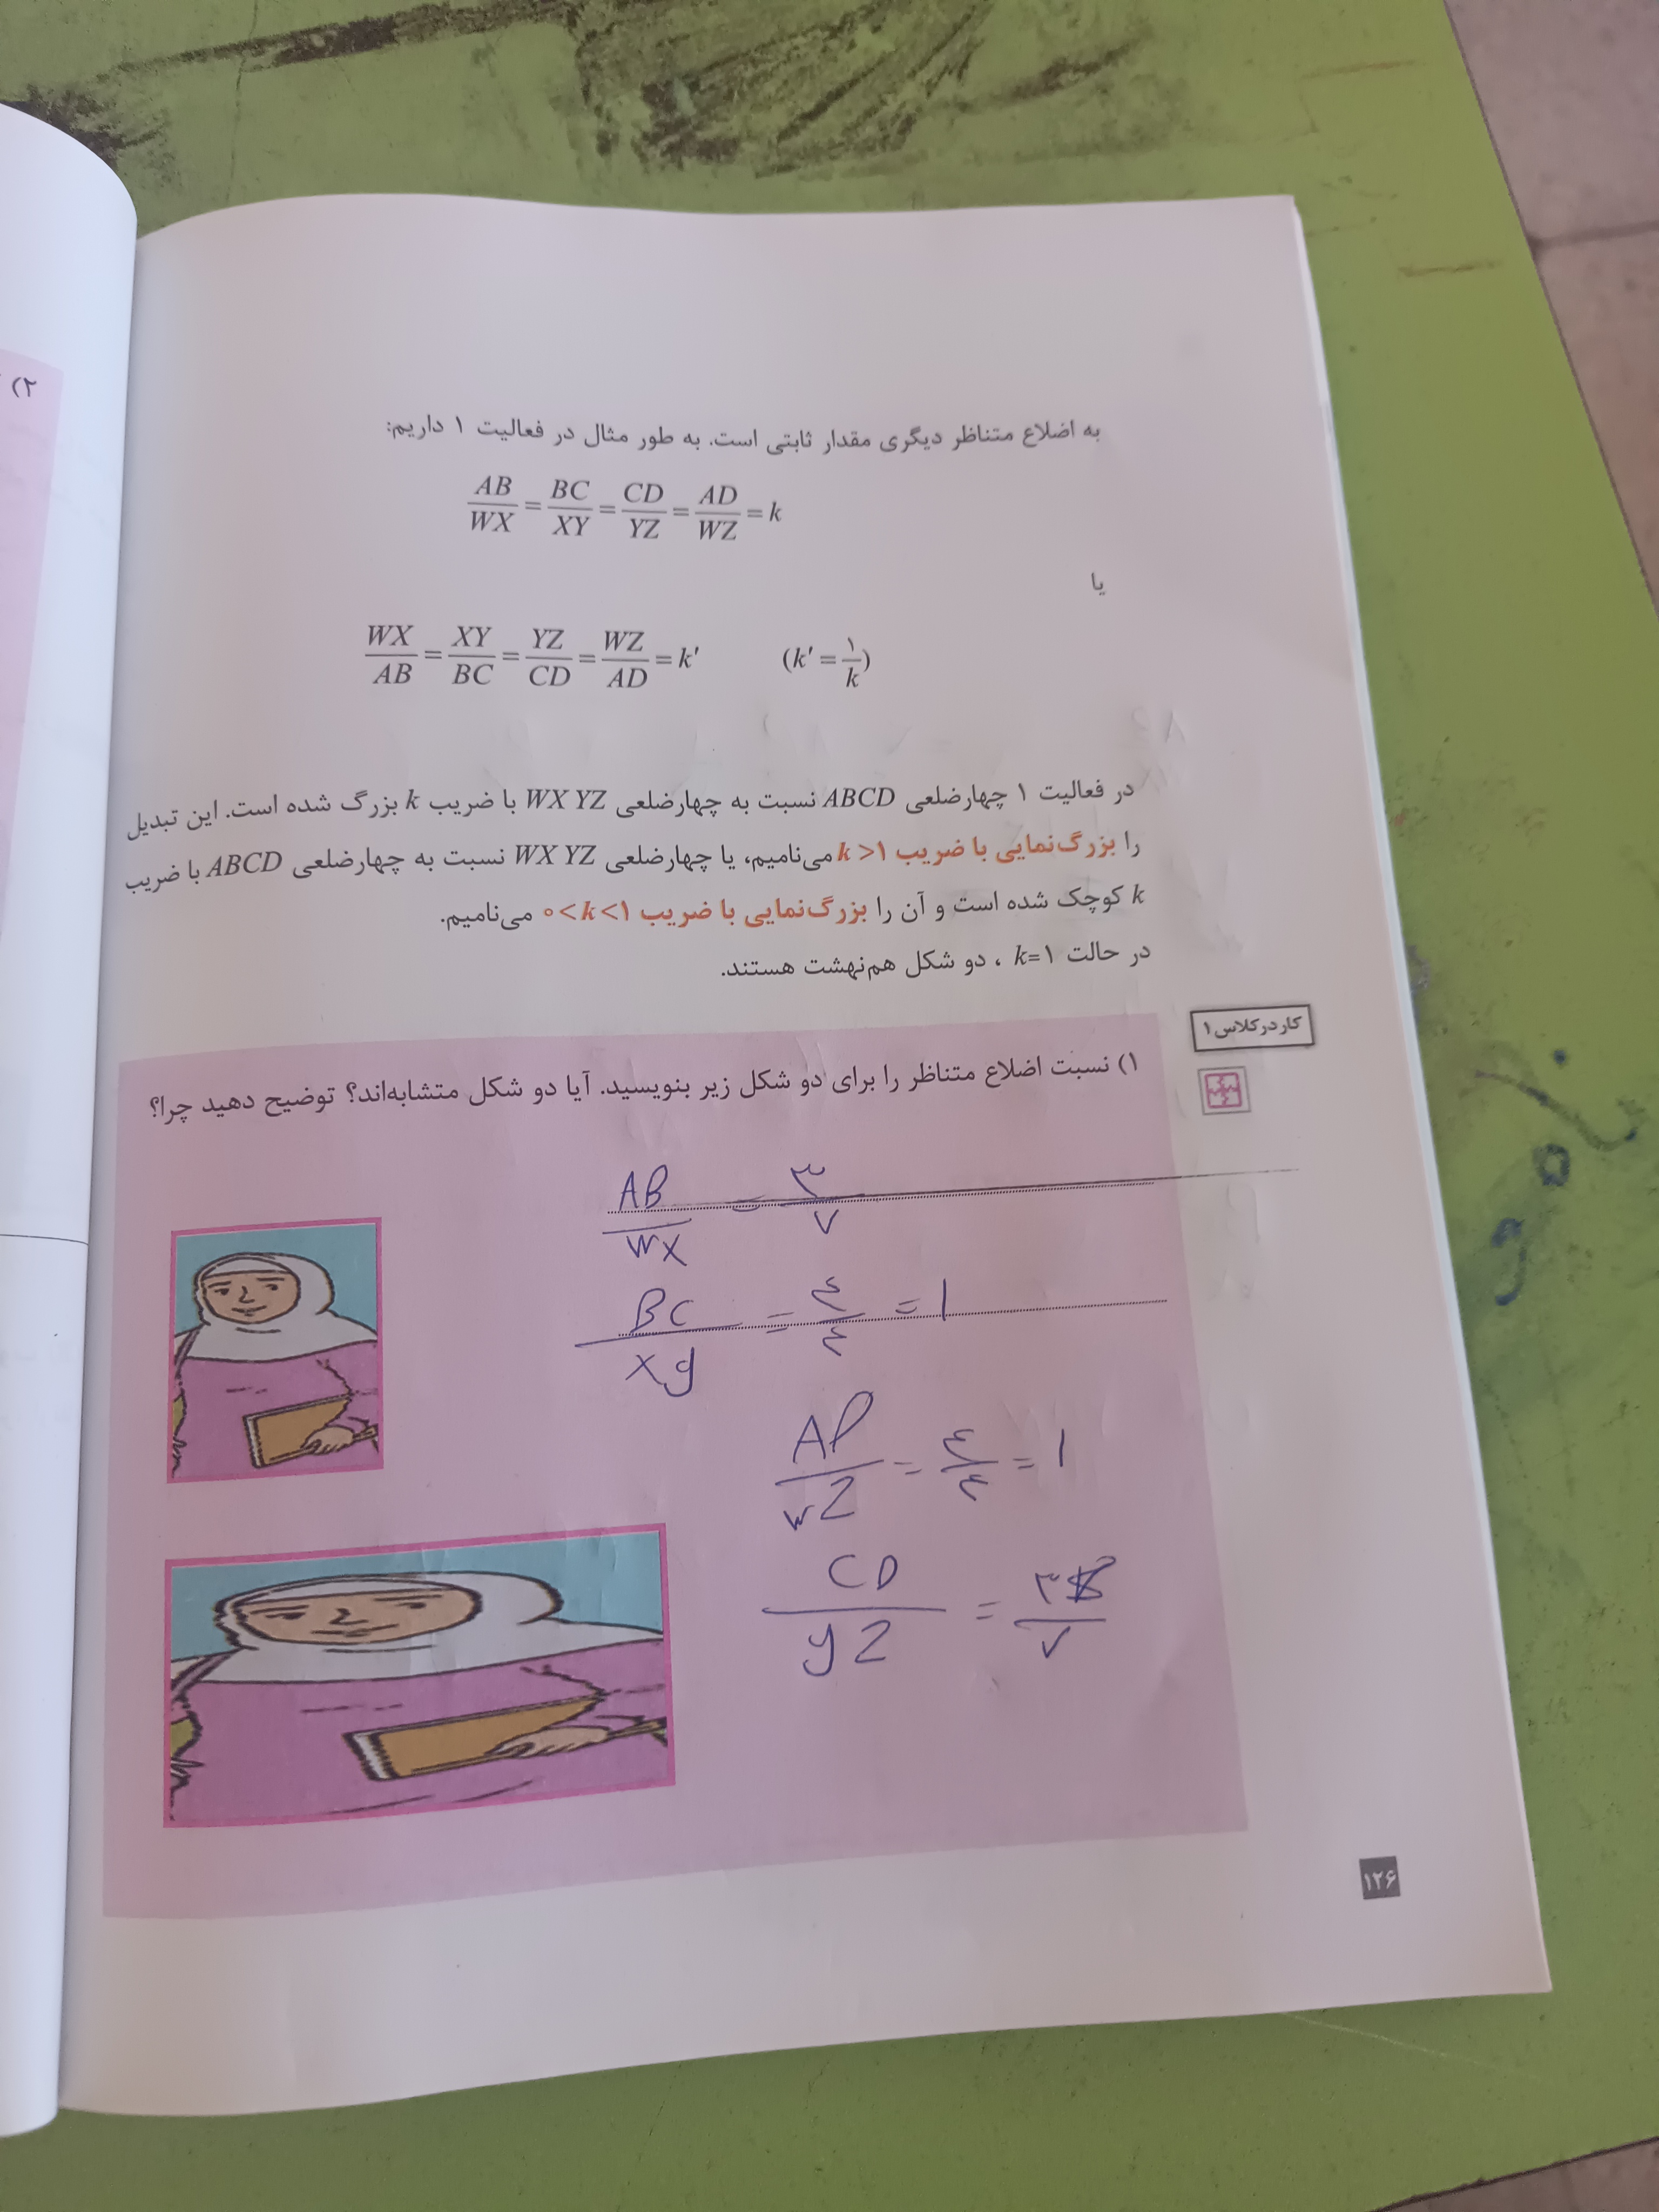 ۲)
به اضلاع متناظر دیگری مقدار ثابتی است. به طور مثال در فعالیت ۱ داریم:
AB/WX = BC/XY = CD/YZ = AD/WZ = k
یا
WX/AB = XY/BC = YZ/CD = WZ/AD = k' (k' = ۱/k)
در فعالیت ۱ چهارضلعی ABCD نسبت به چهارضلعی WX YZ با ضریب k بزرگ شده است. این تبدیل
را بزرگ‌نمایی با ضریب k >۱ می‌نامیم، یا چهارضلعی WX YZ نسبت به چهارضلعی ABCD با ضریب
k کوچک شده است و آن را بزرگ‌نمایی با ضریب ۰< k <۱ می‌نامیم.
در حالت k=۱ ، دو شکل هم‌نهشت هستند.
کار در کلاس ۱
۱) نسبت اضلاع متناظر را برای دو شکل زیر بنویسید. آیا دو شکل متشابه‌اند؟ توضیح دهید چرا؟
AB/WX = ۳/۷
BC/Xy = ٤/٤ = ۱
AD/WZ = ٤/٤ = ۱
CD/yZ = ۳/۷
۱۲۶